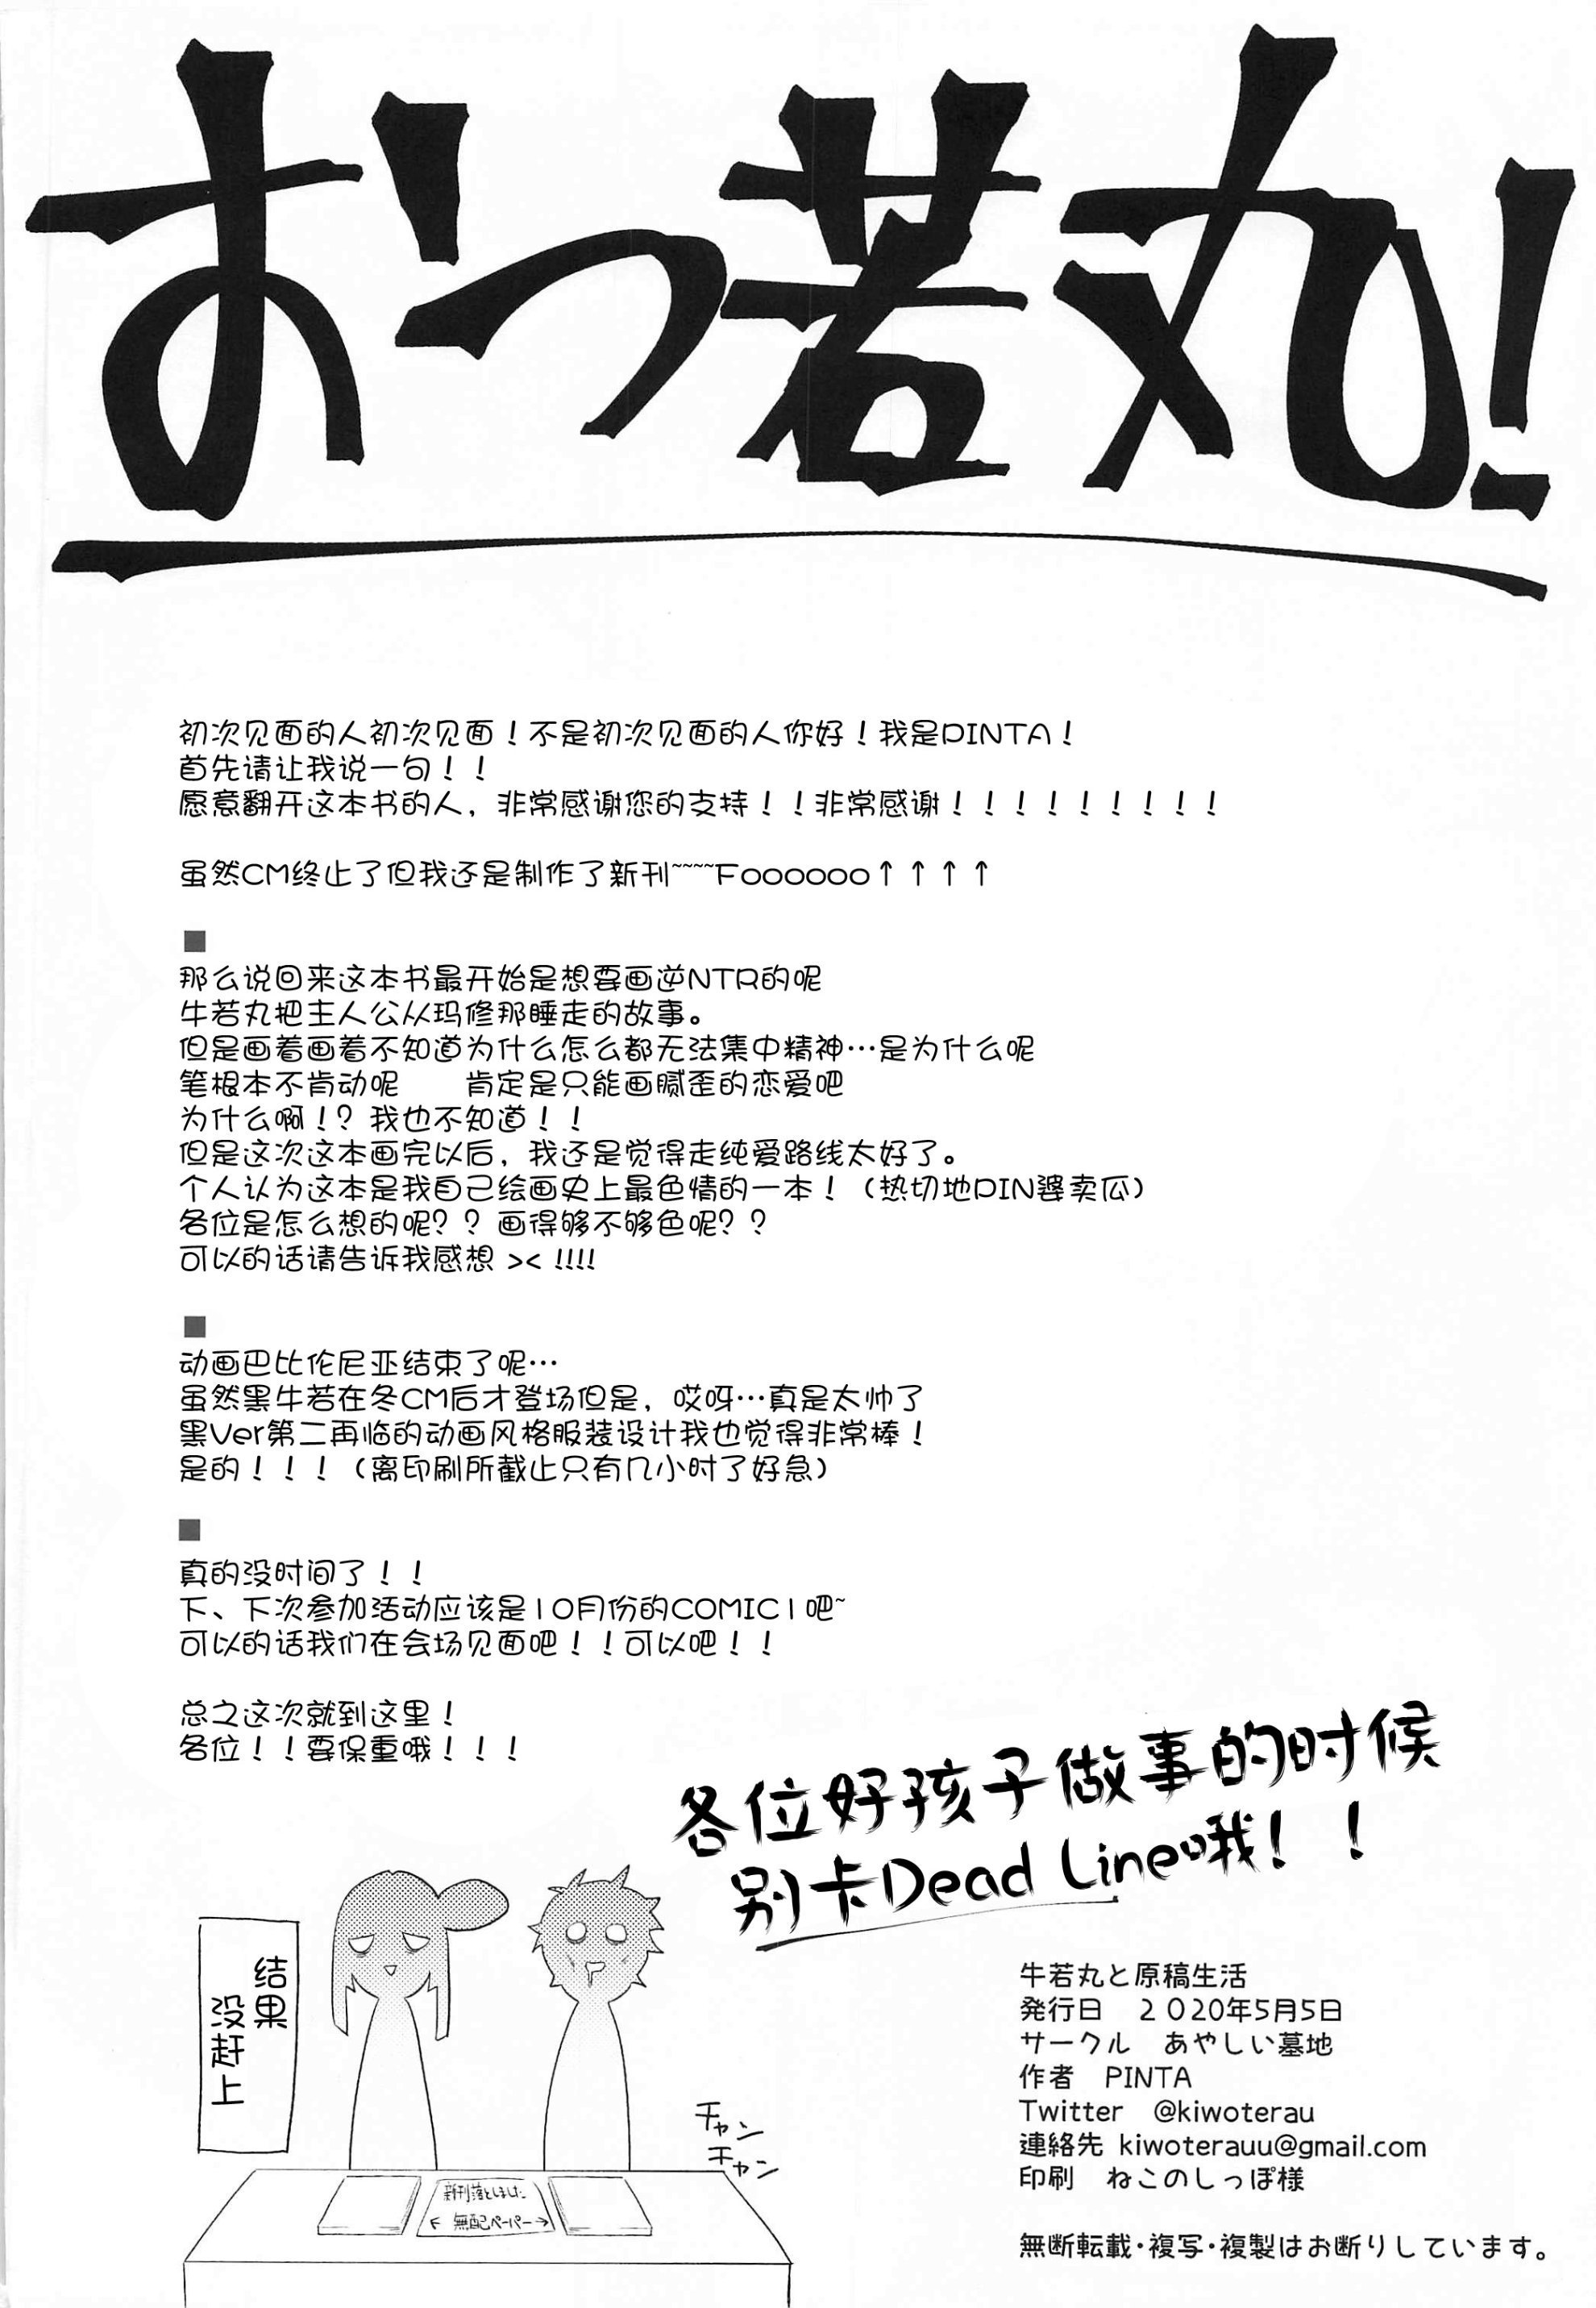 おつ若丸！
初次见面的人初次见面！不是初次见面的人你好！我是PINTA！
首先请让我说一句！！
愿意翻开这本书的人，非常感谢您的支持！！非常感谢！！！！！！！！！
虽然CM终止了但我还是制作了新刊~~~~Foooooo↑↑↑↑
■
那么说回来这本书最开始是想要画逆NTR的呢
牛若丸把主人公从玛修那睡走的故事。
但是画着画着不知道为什么怎么都无法集中精神…是为什么呢
笔根本不肯动呢　　肯定是只能画腻歪的恋爱吧
为什么啊！？我也不知道！！
但是这次这本画完以后，我还是觉得走纯爱路线太好了。
个人认为这本是我自己绘画史上最色情的一本！（热切地PIN婆卖瓜）
各位是怎么想的呢？？画得够不够色呢？？
可以的话请告诉我感想 >< !!!!
■
动画巴比伦尼亚结束了呢…
虽然黑牛若在冬CM后才登场但是，哎呀…真是太帅了
黑Ver第二再临的动画风格服装设计我也觉得非常棒！
是的！！！（离印刷所截止只有几小时了好急）
■
真的没时间了！！
下、下次参加活动应该是10月份的COMIC1吧~
可以的话我们在会场见面吧！！可以吧！！
总之这次就到这里！
各位！！要保重哦！！！
各位好孩子做事的时候
别卡Dead Line哦！！
结果
没赶上
チャン
チャン
新刊落としました
← 無配ペーパー →
牛若丸と原稿生活
発行日　２０20年5月5日
サークル　あやしい墓地
作者　PINTA
Twitter　@kiwoterau
連絡先 kiwoterauu@gmail.com
印刷　ねこのしっぽ様
無断転載・複写・複製はお断りしています。